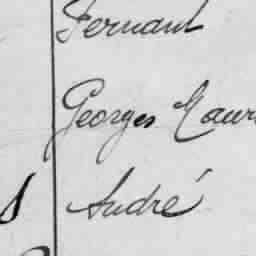 Fernand
Georges Maur
s André